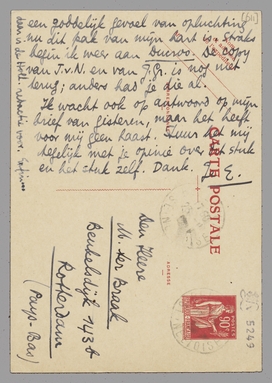 een zoddelijk gevoel van opluchting
nu dit pak van mijn hart is. Straks
begin ik meer aan Ducroo. De copy
van J.v.N. en van J.Gr. is nog niet
terug; anders had je die al.
Ik wacht ook op antwoord op mijn
brief van gisteren, maar het heeft
voor mij geen haast. Stuur dit mij
tegelijk met je opinie over het stuk
en het stuk zelf. Dank. Je E.
CARTE POSTALE
ADRESSE
Den Heere
M. ter Braak
Beukelsdijk 143b
Rotterdam
(Pays-Bas)
POSTES
90c
5249